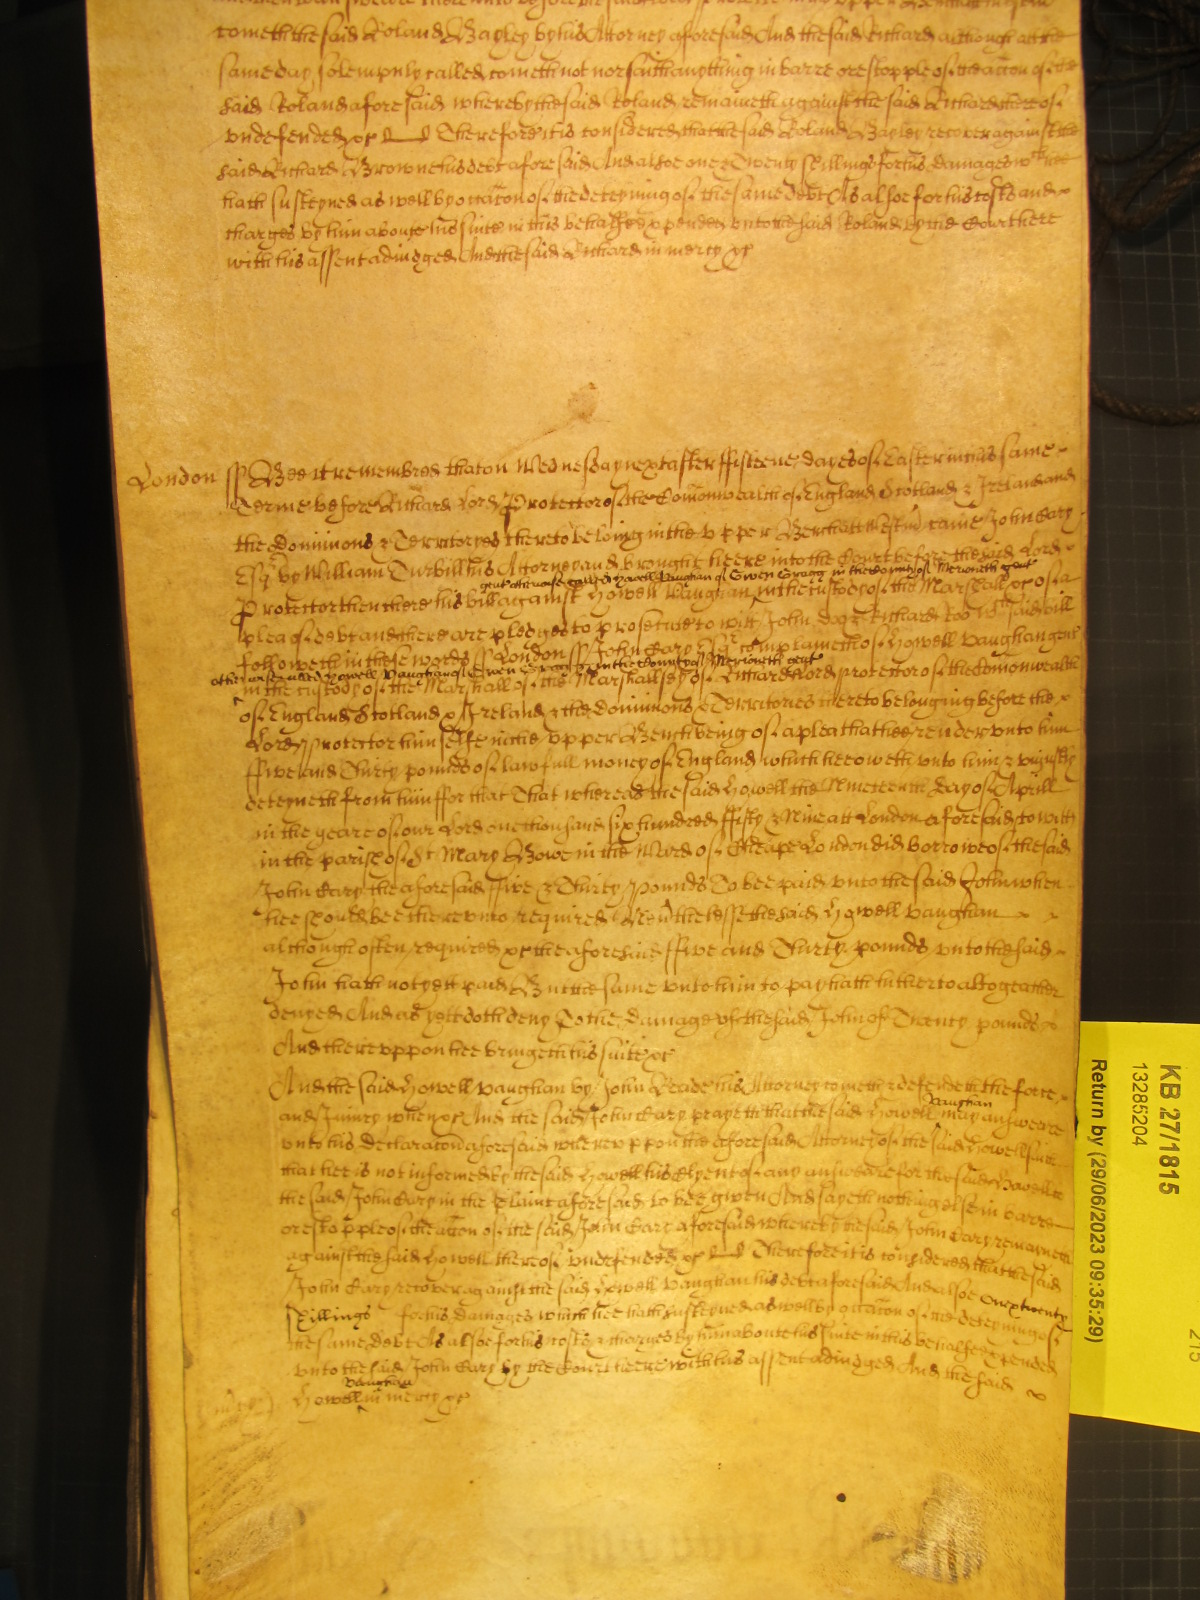 cometh the said Roland Bayley by his Attorney aforesaid And the said Richard although att the
same day solempnly called cometh not nor saith any thing in barre or estopple of the accon of the
said Roland aforesaid whereby the said Roland remaineth against the said Richard thereof
vndefended &c Therefore itis considered that the said Roland Bayley recover against the
said Richard Browne his debt aforesaid And alsoe one & Twenty shillings for his damages wch hee
hath susteyned as well by occacon of the deteyning of the same debt As alsoe for his costs and
charges by him aboute his suite in this behalfe expended vnto the said Roland by the Court here
with his assent adiudged And the said Richard in mercy &c
London ss Bee it remembred that on Wednesday next after ffifteene dayes of Easter in this same
Terme before Richard Lord Protector of the Comonwealth of England Scotland & Ireland and
the Dominions & Territoryes thereto belonging in the vpper Bench att Westmr came John Cary
Esqr by William Turbill his Attorney and brought heere into the Court before the said Lord
gent otherwise called Howell Vaughan of Gwen Gragg in the County of Merioneth gent
Protector then there his bill against Howell Vaughan in the custody of the Marshall &c of a
plea of debt and there are pledges to prosecute to witt John Doe & Richard Roo Wch said bill
followeth in these words ss London ss John Cary Esqr complaineth of Howell Vaughan gent
otherwise called Howell Vaughan of Gwen Gragg in the County of Merioneth gent
in the custody of the Marshall of the Marshallsey of Richard Lord protector of the Comonwealth
of England Scotland & Ireland & the dominions & Territories thereto belonging before the
Lord Protector himselfe in the vpper Bench being of a plea that hee render vnto him
ffive and Thirty pounds of lawfull money of England which hee oweth vnto him & vniustly
deteyneth from him ffor that That whereas the said Howell the Nineteenth day of Aprill
in the yeare of our Lord one thousand six hundred ffifty & Nine att London aforesaid to witt
in the parish of St Mary Bowe in the Ward of Cheape London did borrowe of the said
John Cary the aforesaid ffive & Thirty pounds To bee paid vnto the said John when
hee should bee therevnto required Neverthelesse the said Howell Vaughan
although often required &c the aforesaid ffive and Thirty pounds vnto the said
John hath not yett paid But the same vnto him to pay hath hitherto altogeather
denyed And as yett doth deny To the damage of the said John of Twenty pounds &
And therevppon hee bringeth his suite &c
And the said Howell Vaughan by John Reade his Attorney cometh & defendeth the force
Vaughan
and Iniury when &c And the said John Cary prayeth that the said Howell may answeare
vnto his declaracon aforesaid wherevppon the aforesaid Attorney of the said Howell saith
that hee is not informed by the said Howell his Clyent of any answeare for the said Howell to
the said John Cary in the Plaint aforesaid to bee given And sayeth nothing else in barre
or estopple of the accon of the said John Cary aforesaid whereby the said John Cary remaineth
against the said Howell thereof vndefended &c Therefore it is considered that the said
John Cary recover against the said Howell Vaughan his debt aforesaid And alsoe One & twenty
shillings for his damages which hee hath susteyned as well by occacon of the deteyning of
the same debt As alsoe for his costs & charges by him aboute his suite in this behalfe expended
vnto the said John Cary by the Court heere with his assent adiudged And the said
Vaughan
Howell in mercy &c
KB 27/1815
13285204
Return by (29/06/2023 09:35:29)